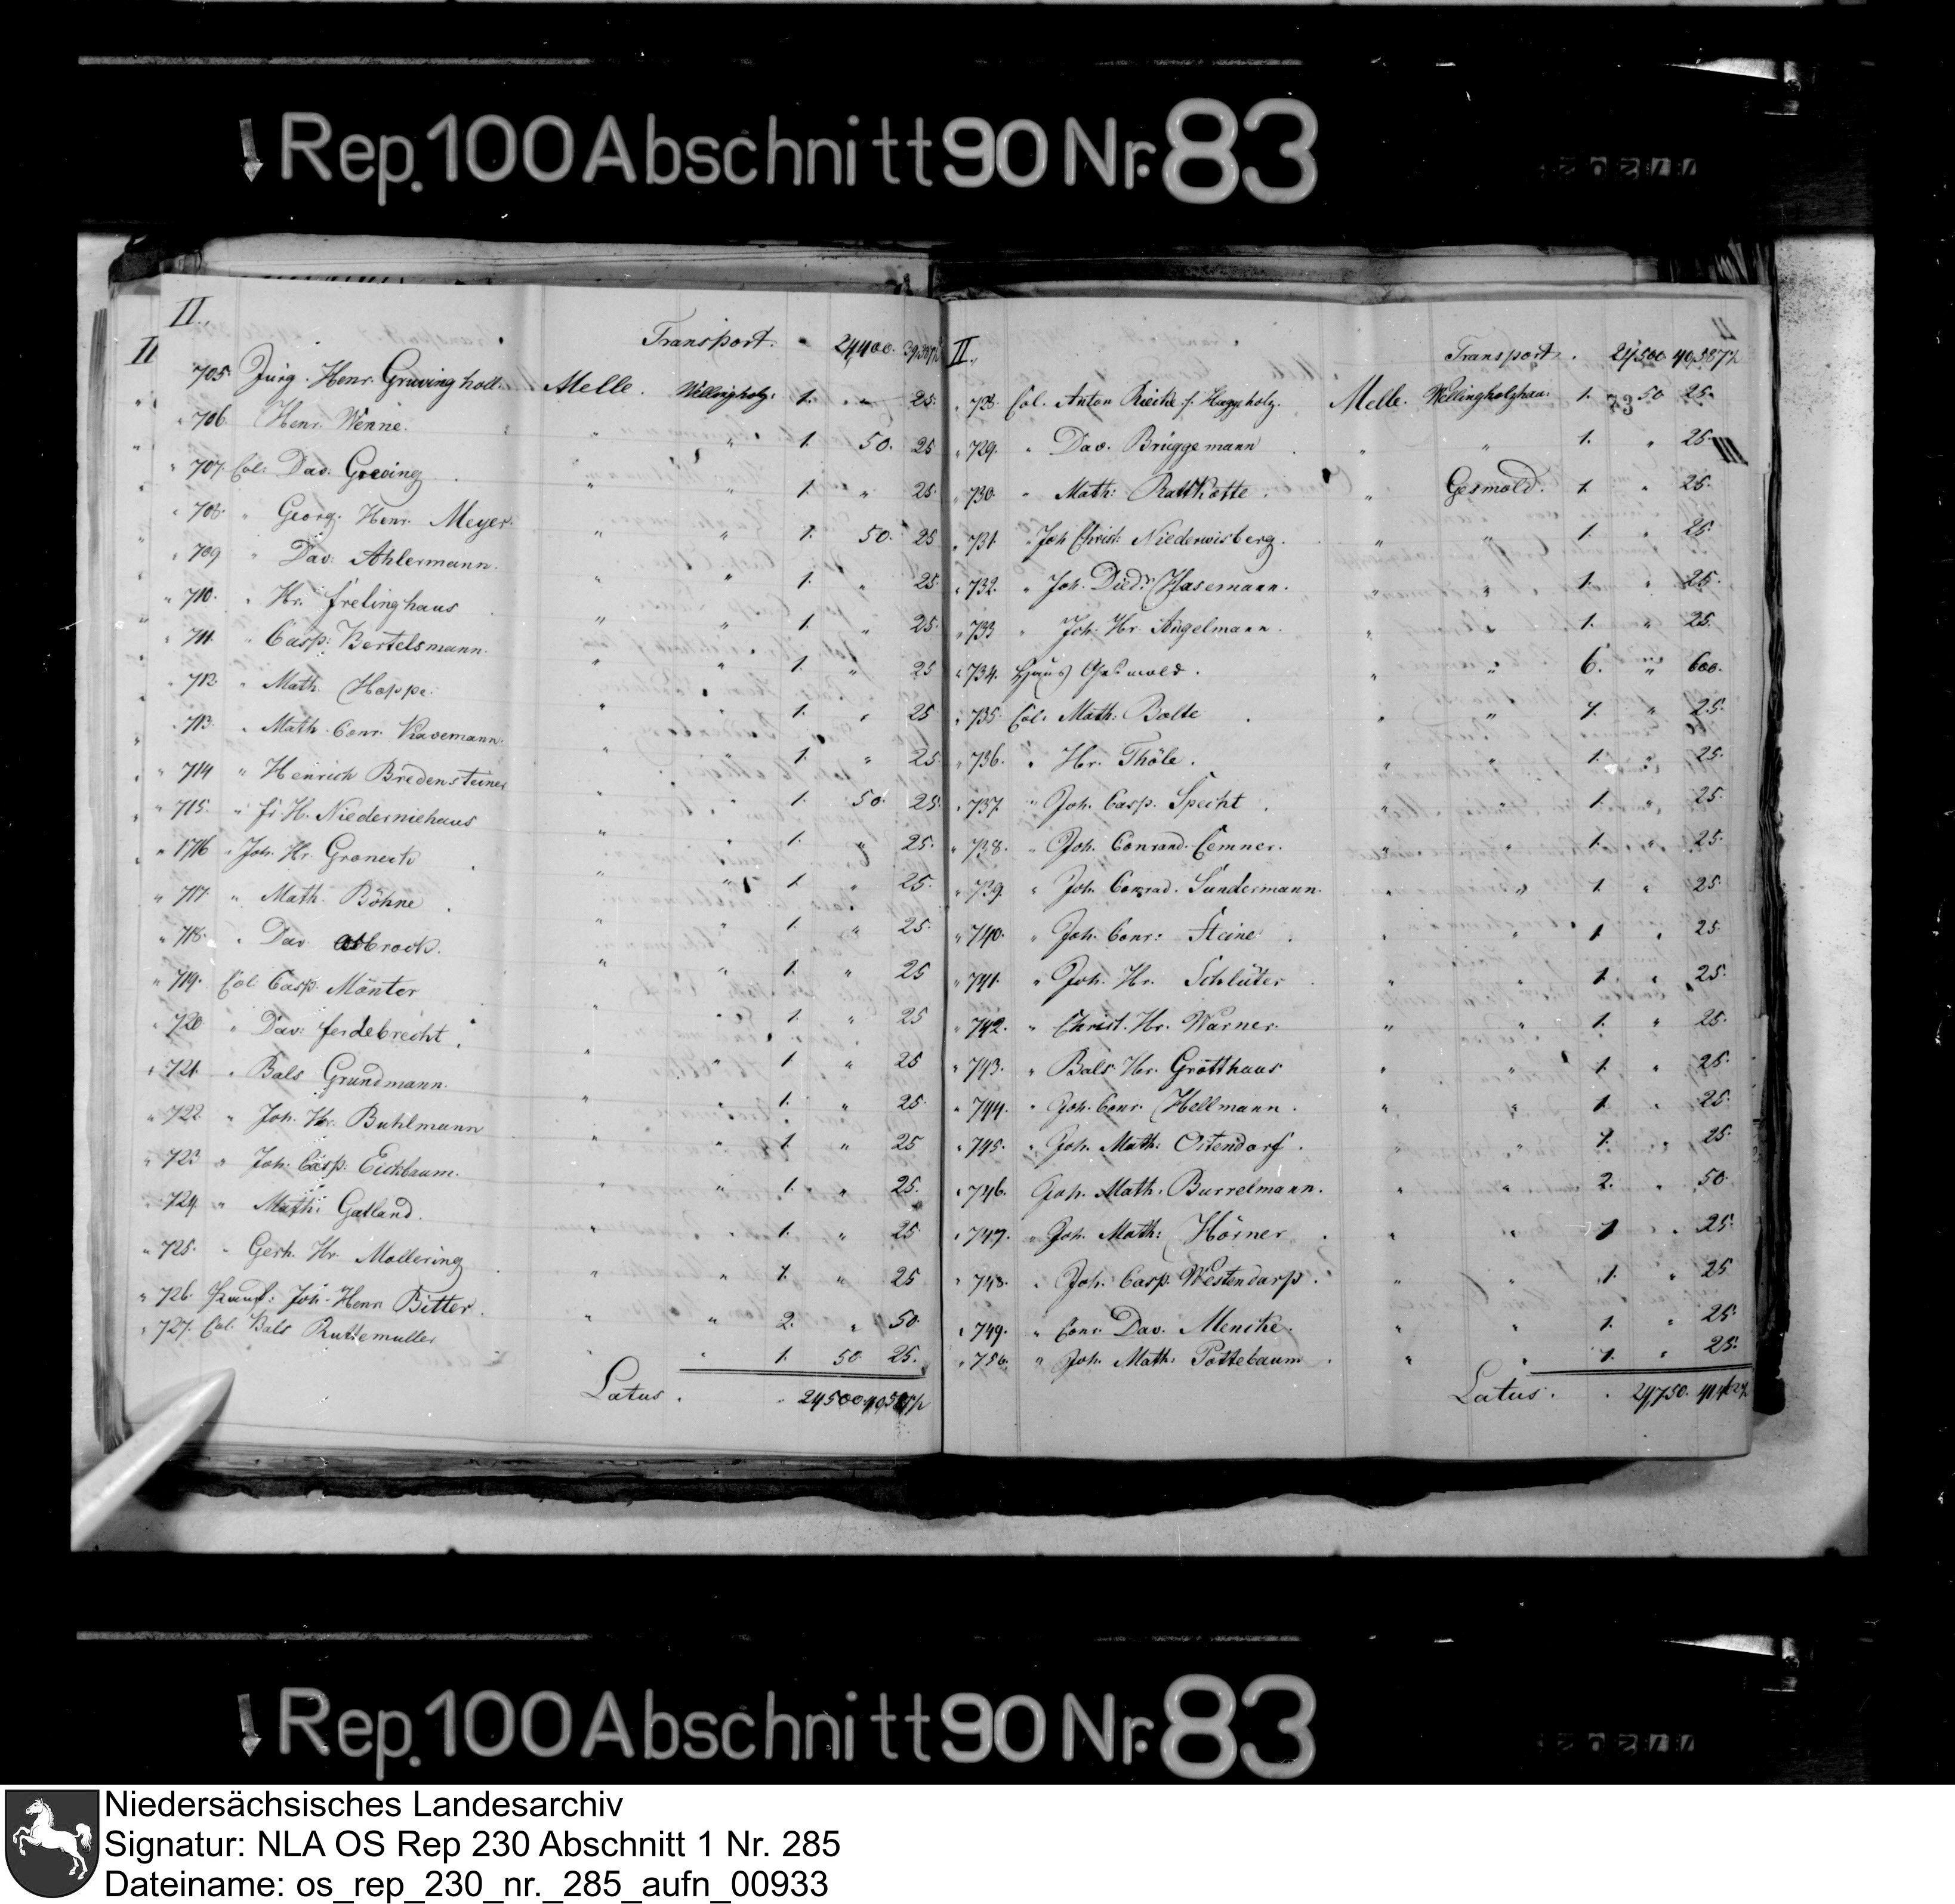 Rep. 100 Abschnitt 90 Nr. 83
II.
II Transport. 24400.
705. Jürg. Henr. Gruvingholt Melle. Wellingholz: 1. " 25.
" 706. Henr. Wenne. " " 1. 50. 25
" 707. Col. Dav. Greving " " 1. " 25.
" 708. " Georg. Henr. Meyer. " " 1. 50. 25
" 709 " Dav. Ahlermann. " " 1. " 25.
" 710. " Hr. Frelinghaus " " 1. " 25.
" 711. " Casp. Bertelsmann. " " 1. " 25
" 712. " Math. Hoppe. " " 1. " 25
" 713. " Math. Conr. Kavemann. " " 1. " 25.
" 714 " Henrich Bredensteiner " " 1. 50. 25.
" 715. " Fr. H. Niederniehaus " " 1. " 25.
" 1716 " Joh. Hr. " " 1. " 25.
" 717. " Math. Böhne " " 1. " 25.
" 718. " Dav. Asbrock. " " 1. " 25
" 719. Col. Casp. Mönter " " 1. " 25
" 720 " Dav. Ferdebrecht. " " 1 " 25
" 721. " Bals Grundmann. " " 1. " 25.
" 722. " Joh. Hr. Buhlmann " " 1 " 25
" 723 " Joh. Casp. Eickbaum. " " 1. " 25.
" 724. " Math. Gatland. " " 1. " 25.
" 725. " Gerh. Hr. Mollering " " 1. " 25
" 726. Joh. Henr. Bitter. " " 2. " 50.
" 727. Col. Bals Ruttemuller " " 1. 50 25.
Latus. 24500.
II. Transport. 24500 40,587½
" 728. Col. Anton Riecke Melle. Wellingholzhau: 1. 50 25.
73
" 729. " Dav. Brüggemann " " 1. " 25.
III
" 730. " Math. Rattkotte. " Gesmold. 1. " 25.
" 731. " Joh Christ. Niederwisberg. " " 1. " 25.
" 732. " Joh. Died. Hasemann. " " 1. " 25.
" 733 " Joh. Hr. Angelmann. " " 1. " 25.
" 734. Haus Gesmold. " " 6. " 600.
" 735. Col. Math. Bolte " " 1. " 25.
" 736. " Hr. Thöle. " " 1. " 25.
" 737. " Joh. Casp. Specht. " " 1. " 25.
" 738. " Joh. Conrand. Cemner. " " 1. " 25.
" 739. " Joh. Conrad. Sundermann. " " 1. " 25
" 740. " Joh. Conr. Steine " " 1 " 25.
" 741. " Joh. Hr. Schlüter " " 1. " 25.
" 742. " Christ. Hr. Warner. " " 1. " 25.
" 743. " Bals. Hr. Grotthaus " " 1. " 25.
" 744. " Joh. Conr. Hellmann. " " 1. " 25.
" 745. " Joh. Math: Ostendorf. " " 1. " 25.
" 746. Joh. Math. Burrelmann. " " 2. " 50.
" 747. " Joh. Math: Hörner " " 1 " 25.
" 748. " Joh. Casp. Westendarp. " " 1. " 25
" 749. " Conr. Dav. Mencke. " " 1. " 25.
" 750. " Joh. Math: Pottebaum " " 1. " 25.
Latus. 24,750.
Rep. 100 Abschnitt 90 Nr. 83
Niedersächsisches Landesarchiv
Signatur: NLA OS Rep 230 Abschnitt 1 Nr. 285
Dateiname: os_rep_230_nr._285_aufn_00933